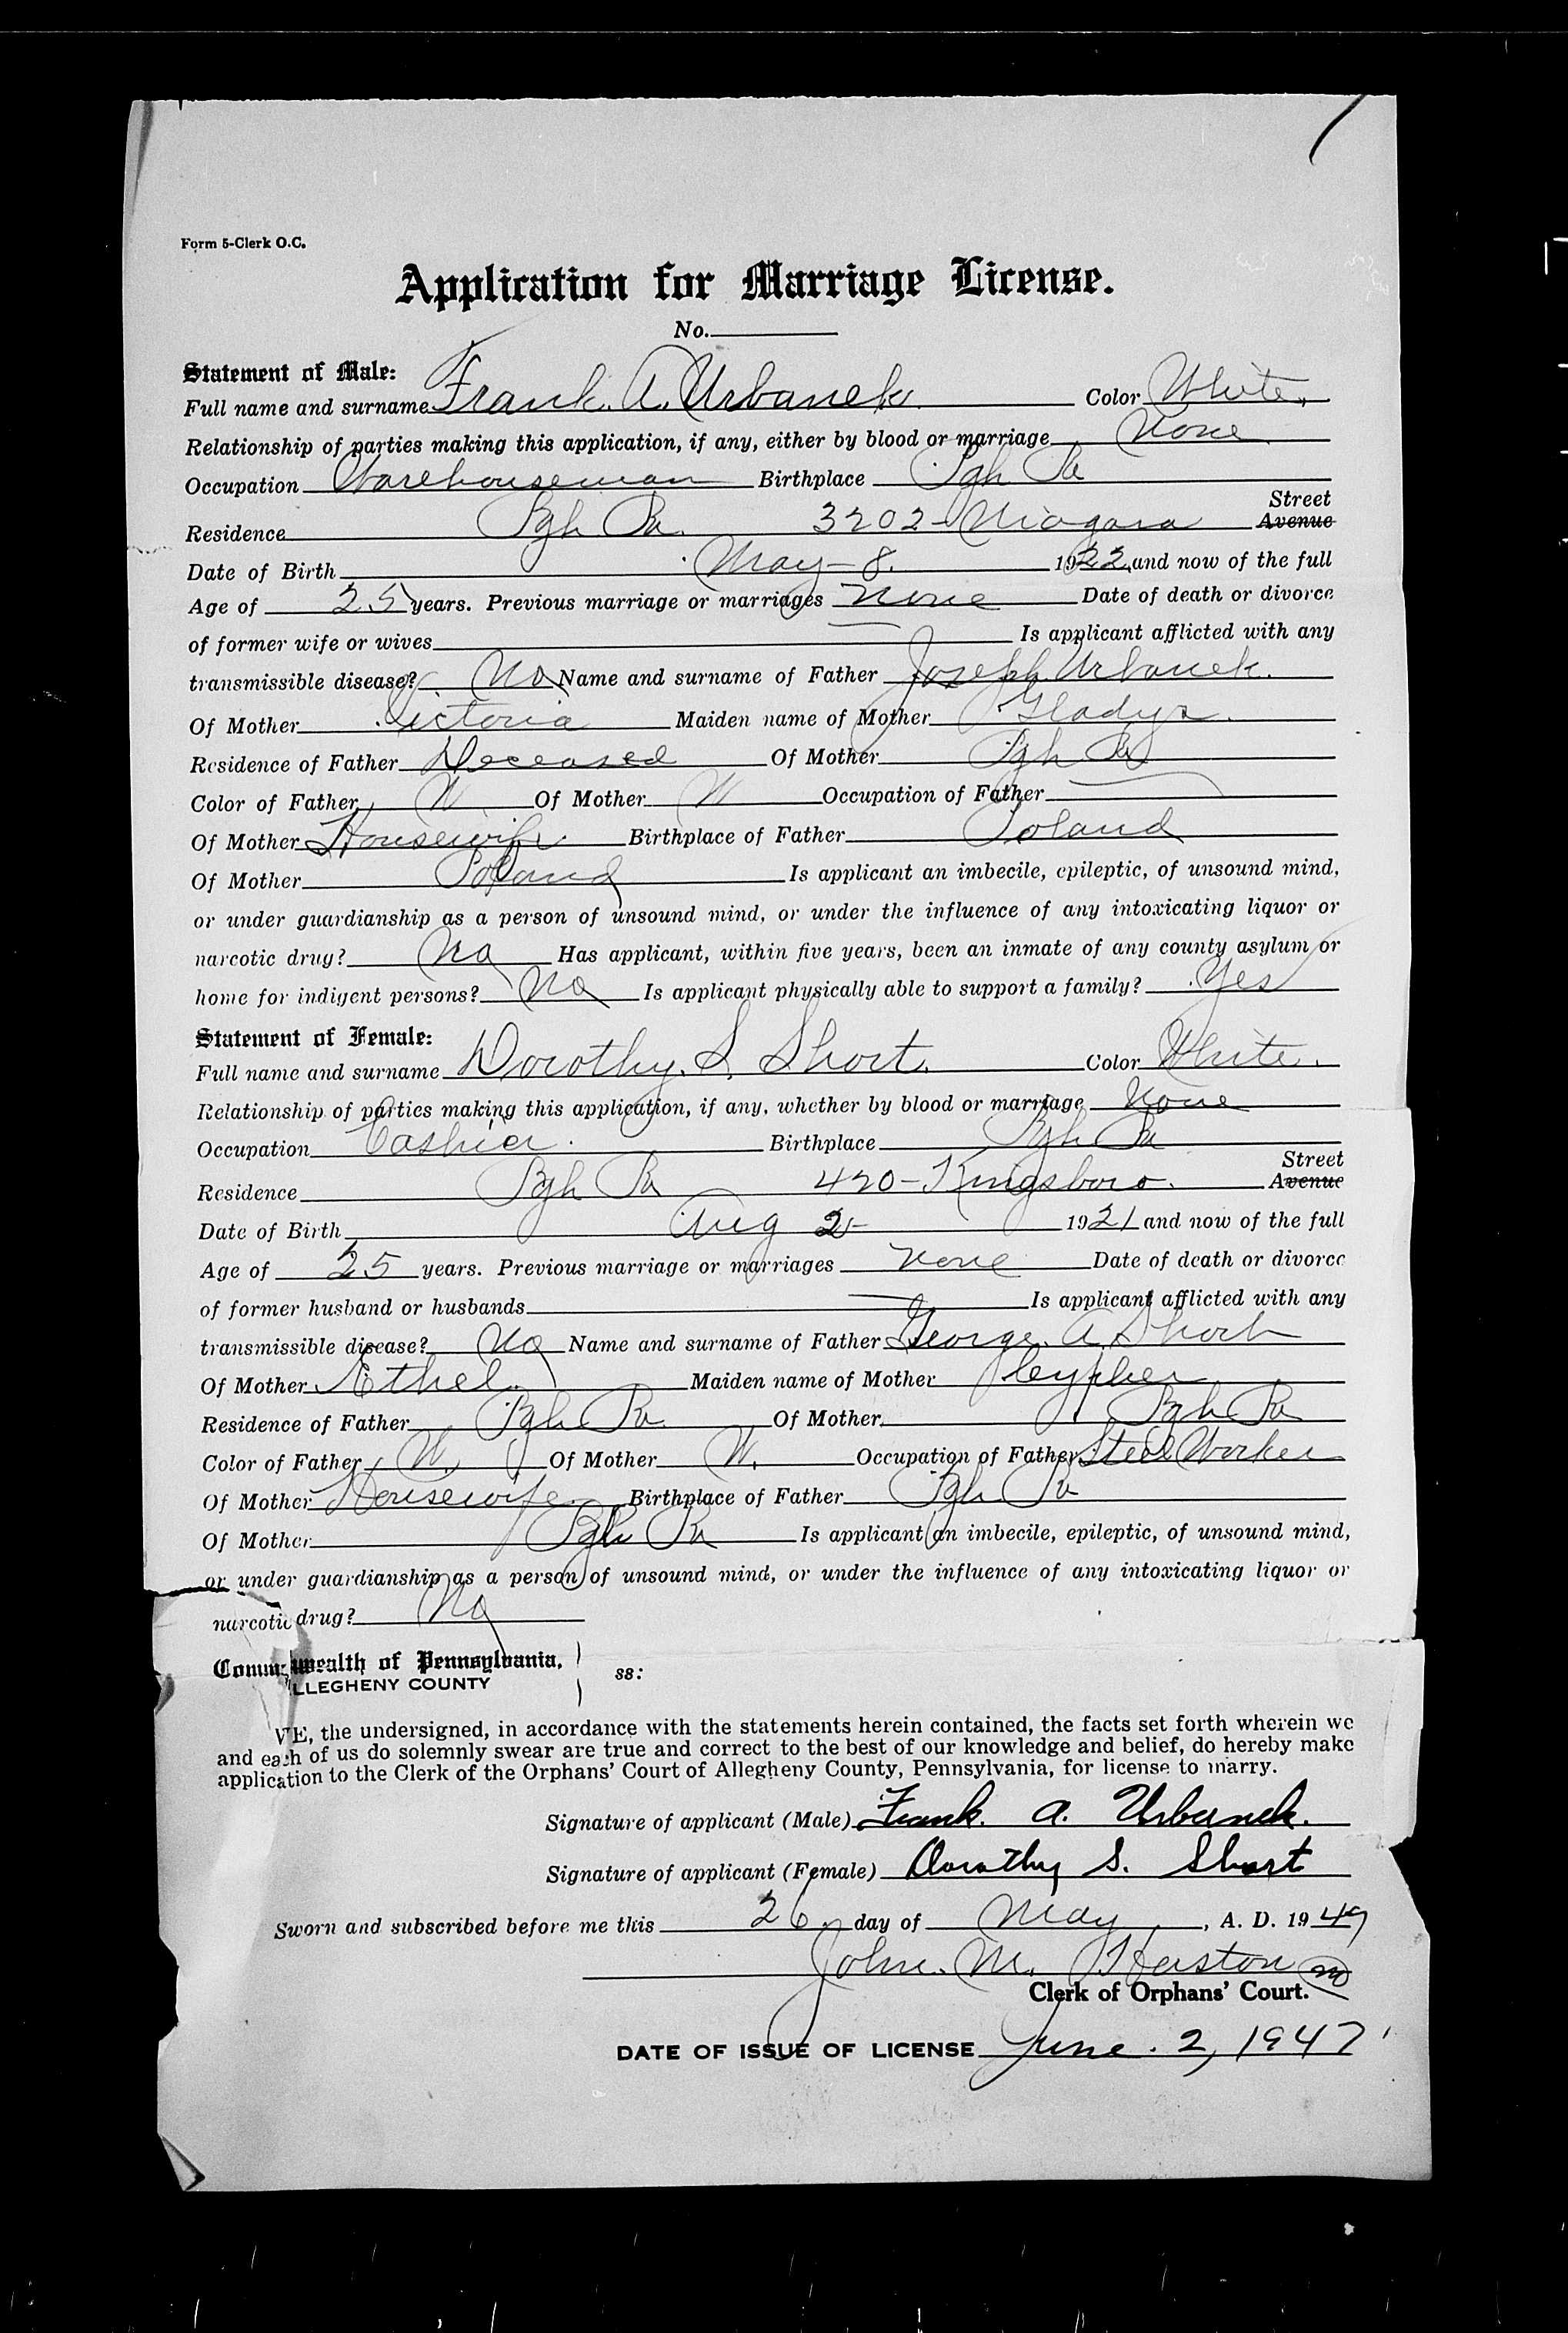 Form 5-Clerk O.C.
Application for Marriage License.
No.
Statement of Male:
Full name and surname Frank A. Urbanek Color White
Relationship of parties making this application, if any, either by blood or marriage None
Occupation Warehouseman Birthplace Pgh Pa
Street
Residence Pgh Pa. 3202- Niagara Avenue
Date of Birth May-8. 1922 and now of the full
Age of 25 years. Previous marriage or marriages None Date of death or divorce
of former wife or wives Is applicant afflicted with any
transmissible disease? No Name and surname of Father Joseph Urbanek.
Of Mother Victoria Maiden name of Mother Gladys.
Residence of Father Deceased Of Mother Pgh Pa
Color of Father W Of Mother W Occupation of Father
Of Mother Housewife Birthplace of Father Poland
Of Mother Poland Is applicant an imbecile, epileptic, of unsound mind,
or under guardianship as a person of unsound mind, or under the influence of any intoxicating liquor or
narcotic drug? No Has applicant, within five years, been an inmate of any county asylum or
home for indigent persons? No Is applicant physically able to support a family? Yes
Statement of Female:
Full name and surname Dorothy S. Short. Color White.
Relationship of parties making this application, if any, whether by blood or marriage None
Occupation Cashier Birthplace Pgh Pa
Street
Residence Pgh Pa 420- Kingsboro. Avenue
Date of Birth Aug 2- 1921 and now of the full
Age of 25 years. Previous marriage or marriages None Date of death or divorce
of former husband or husbands Is applicant afflicted with any
transmissible disease? No Name and surname of Father George A. Short
Of Mother Ethel Maiden name of Mother
Residence of Father Pgh Pa Of Mother Pgh Pa
Color of Father W. Of Mother W. Occupation of Father Steel Worker
Of Mother Housewife Birthplace of Father Pgh Pa
Of Mother Pgh Pa Is applicant an imbecile, epileptic, of unsound mind,
or under guardianship as a person of unsound mind, or under the influence of any intoxicating liquor or
narcotic drug? No
Commonwealth of Pennsylvania,
LLEGHENY COUNTY ss:
WE, the undersigned, in accordance with the statements herein contained, the facts set forth wherein we
and each of us do solemnly swear are true and correct to the best of our knowledge and belief, do hereby make
application to the Clerk of the Orphans' Court of Allegheny County, Pennsylvania, for license to marry.
Signature of applicant (Male) Frank. A. Urbanek.
Signature of applicant (Female) Dorothy S. Short
Sworn and subscribed before me this 26 day of May, A. D. 1947
John. M. Huston
Clerk of Orphans' Court.
DATE OF ISSUE OF LICENSE June. 2, 1947